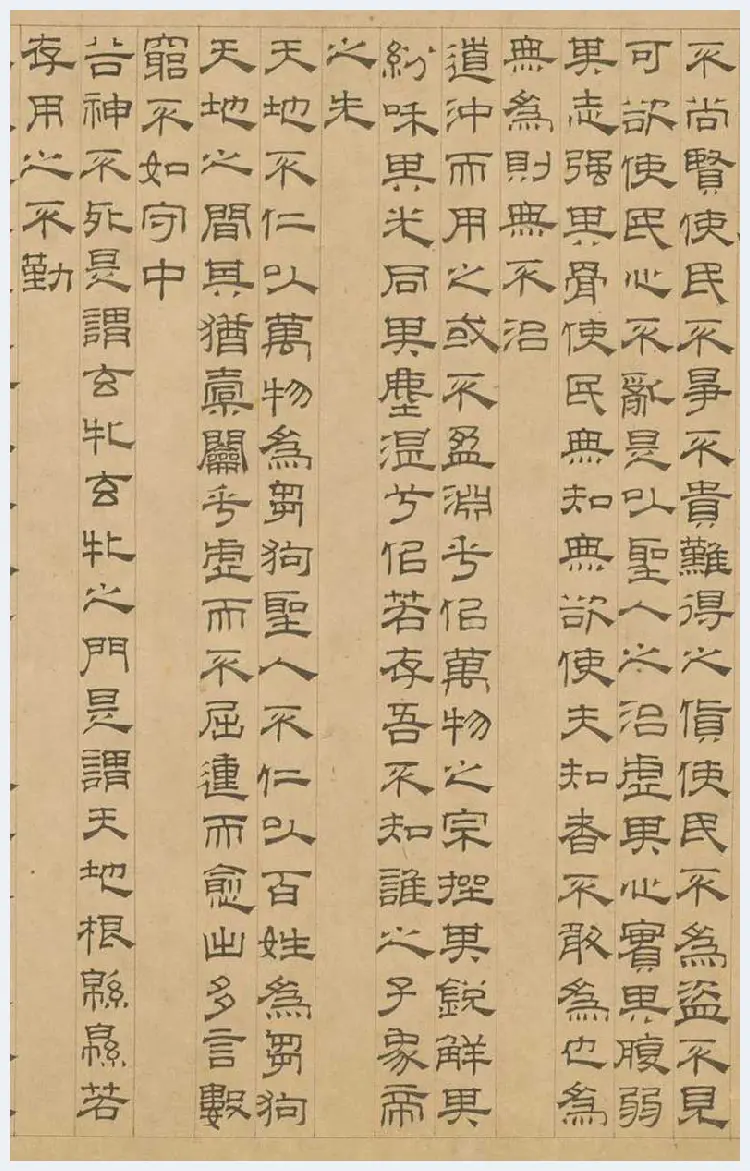 不尚賢使民不爭不貴難得之貨使民不爲盜不見
可欲使民心不亂是以聖人之治虛其心實其腹弱
其志强其骨使民無知無欲使夫知者不敢爲也爲
無爲則無不治
道沖而用之或不盈淵乎佀萬物之宗挫其銳解其
紛和其光同其塵湛兮佀若存吾不知誰之子象帝
之先
天地不仁以萬物爲芻狗聖人不仁以百姓爲芻狗
天地之間其猶橐籥乎虛而不屈動而愈出多言數
窮不如守中
谷神不死是謂玄牝玄牝之門是謂天地根緜緜若
存用之不勤